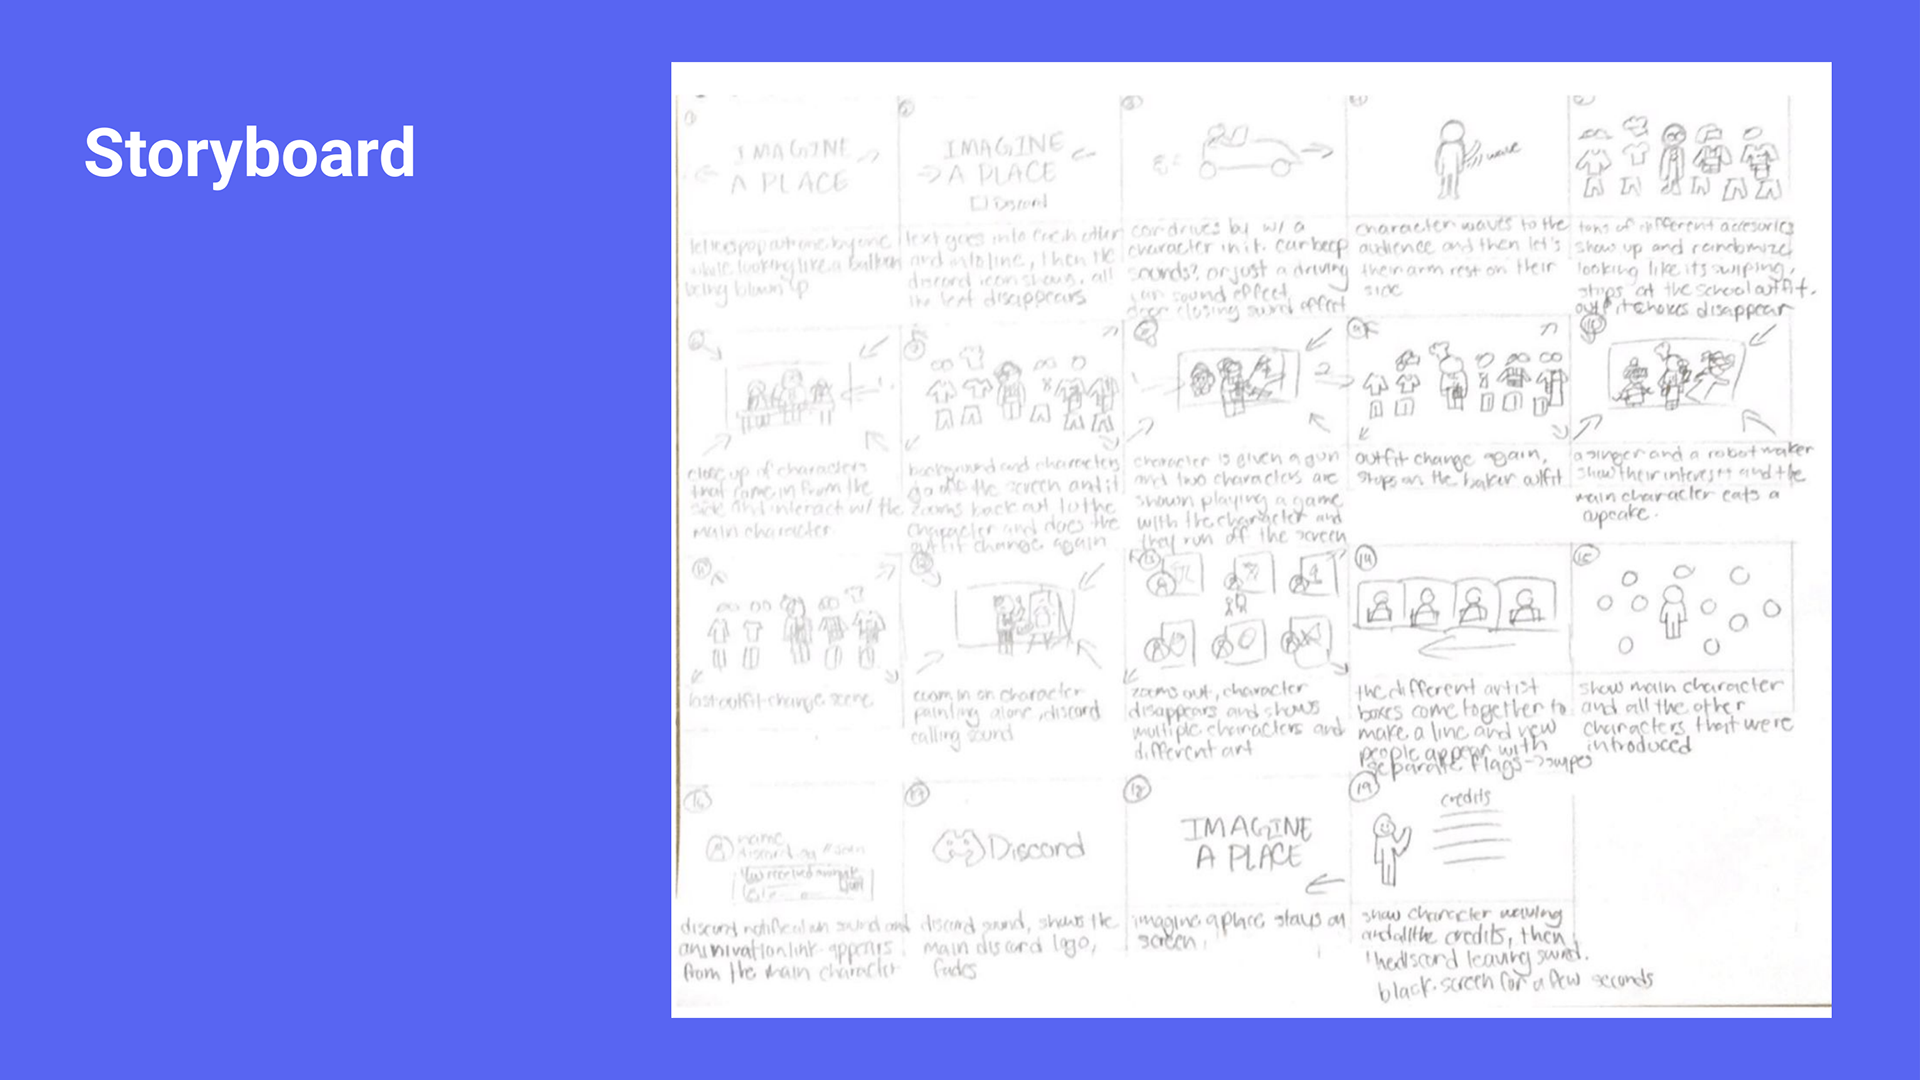 Storyboard
1
IMAGINE
A PLACE
letters pop out one by one
while looking like a balloon
being blown up
IMAGINE
A PLACE
Discord
text goes into each other
and into line, then the
discord icon shows, all
the text disappears
car drives by w/ a
character in it. car beep
sounds? or just a driving
car sound effect,
door closing sound effect
wave
character waves to the
audience and then let's
their arm rest on their
side
tons of different accesories
show up and randomize
looking like its swiping,
stops at the school outfit.
outfit choices disappear
close up of characters
that come in from the
side and interact w/ the
main character
background and characters
go off the screen and it
zooms back out to the
character and does the
outfit change again
character is given a gun
and two characters are
shown playing a game
with the character and
they run off the screen
outfit change again,
stops on the baker outfit
10
a singer and a robot maker
show their interest and the
main character eats a
cupcake.
11
last outfit change scene
12
zoom in on character
painting alone, discord
calling sound
13
zooms out, character
disappears and shows
multiple characters and
different art
14
the different artist
boxes come together to
make a line and new
people appear with
separate flags->swipes
15
show main character
and all the other
characters that were
introduced
16
name
discord notification sound and
an invitation link appears
from the main character
17
Discord
discord sound, shows the
main discord logo,
fades
18
IMAGINE
A PLACE
imagine a place stays on
screen.
19
credits
show character waving
and all the credits, then
the discord leaving sound.
black screen for a few seconds